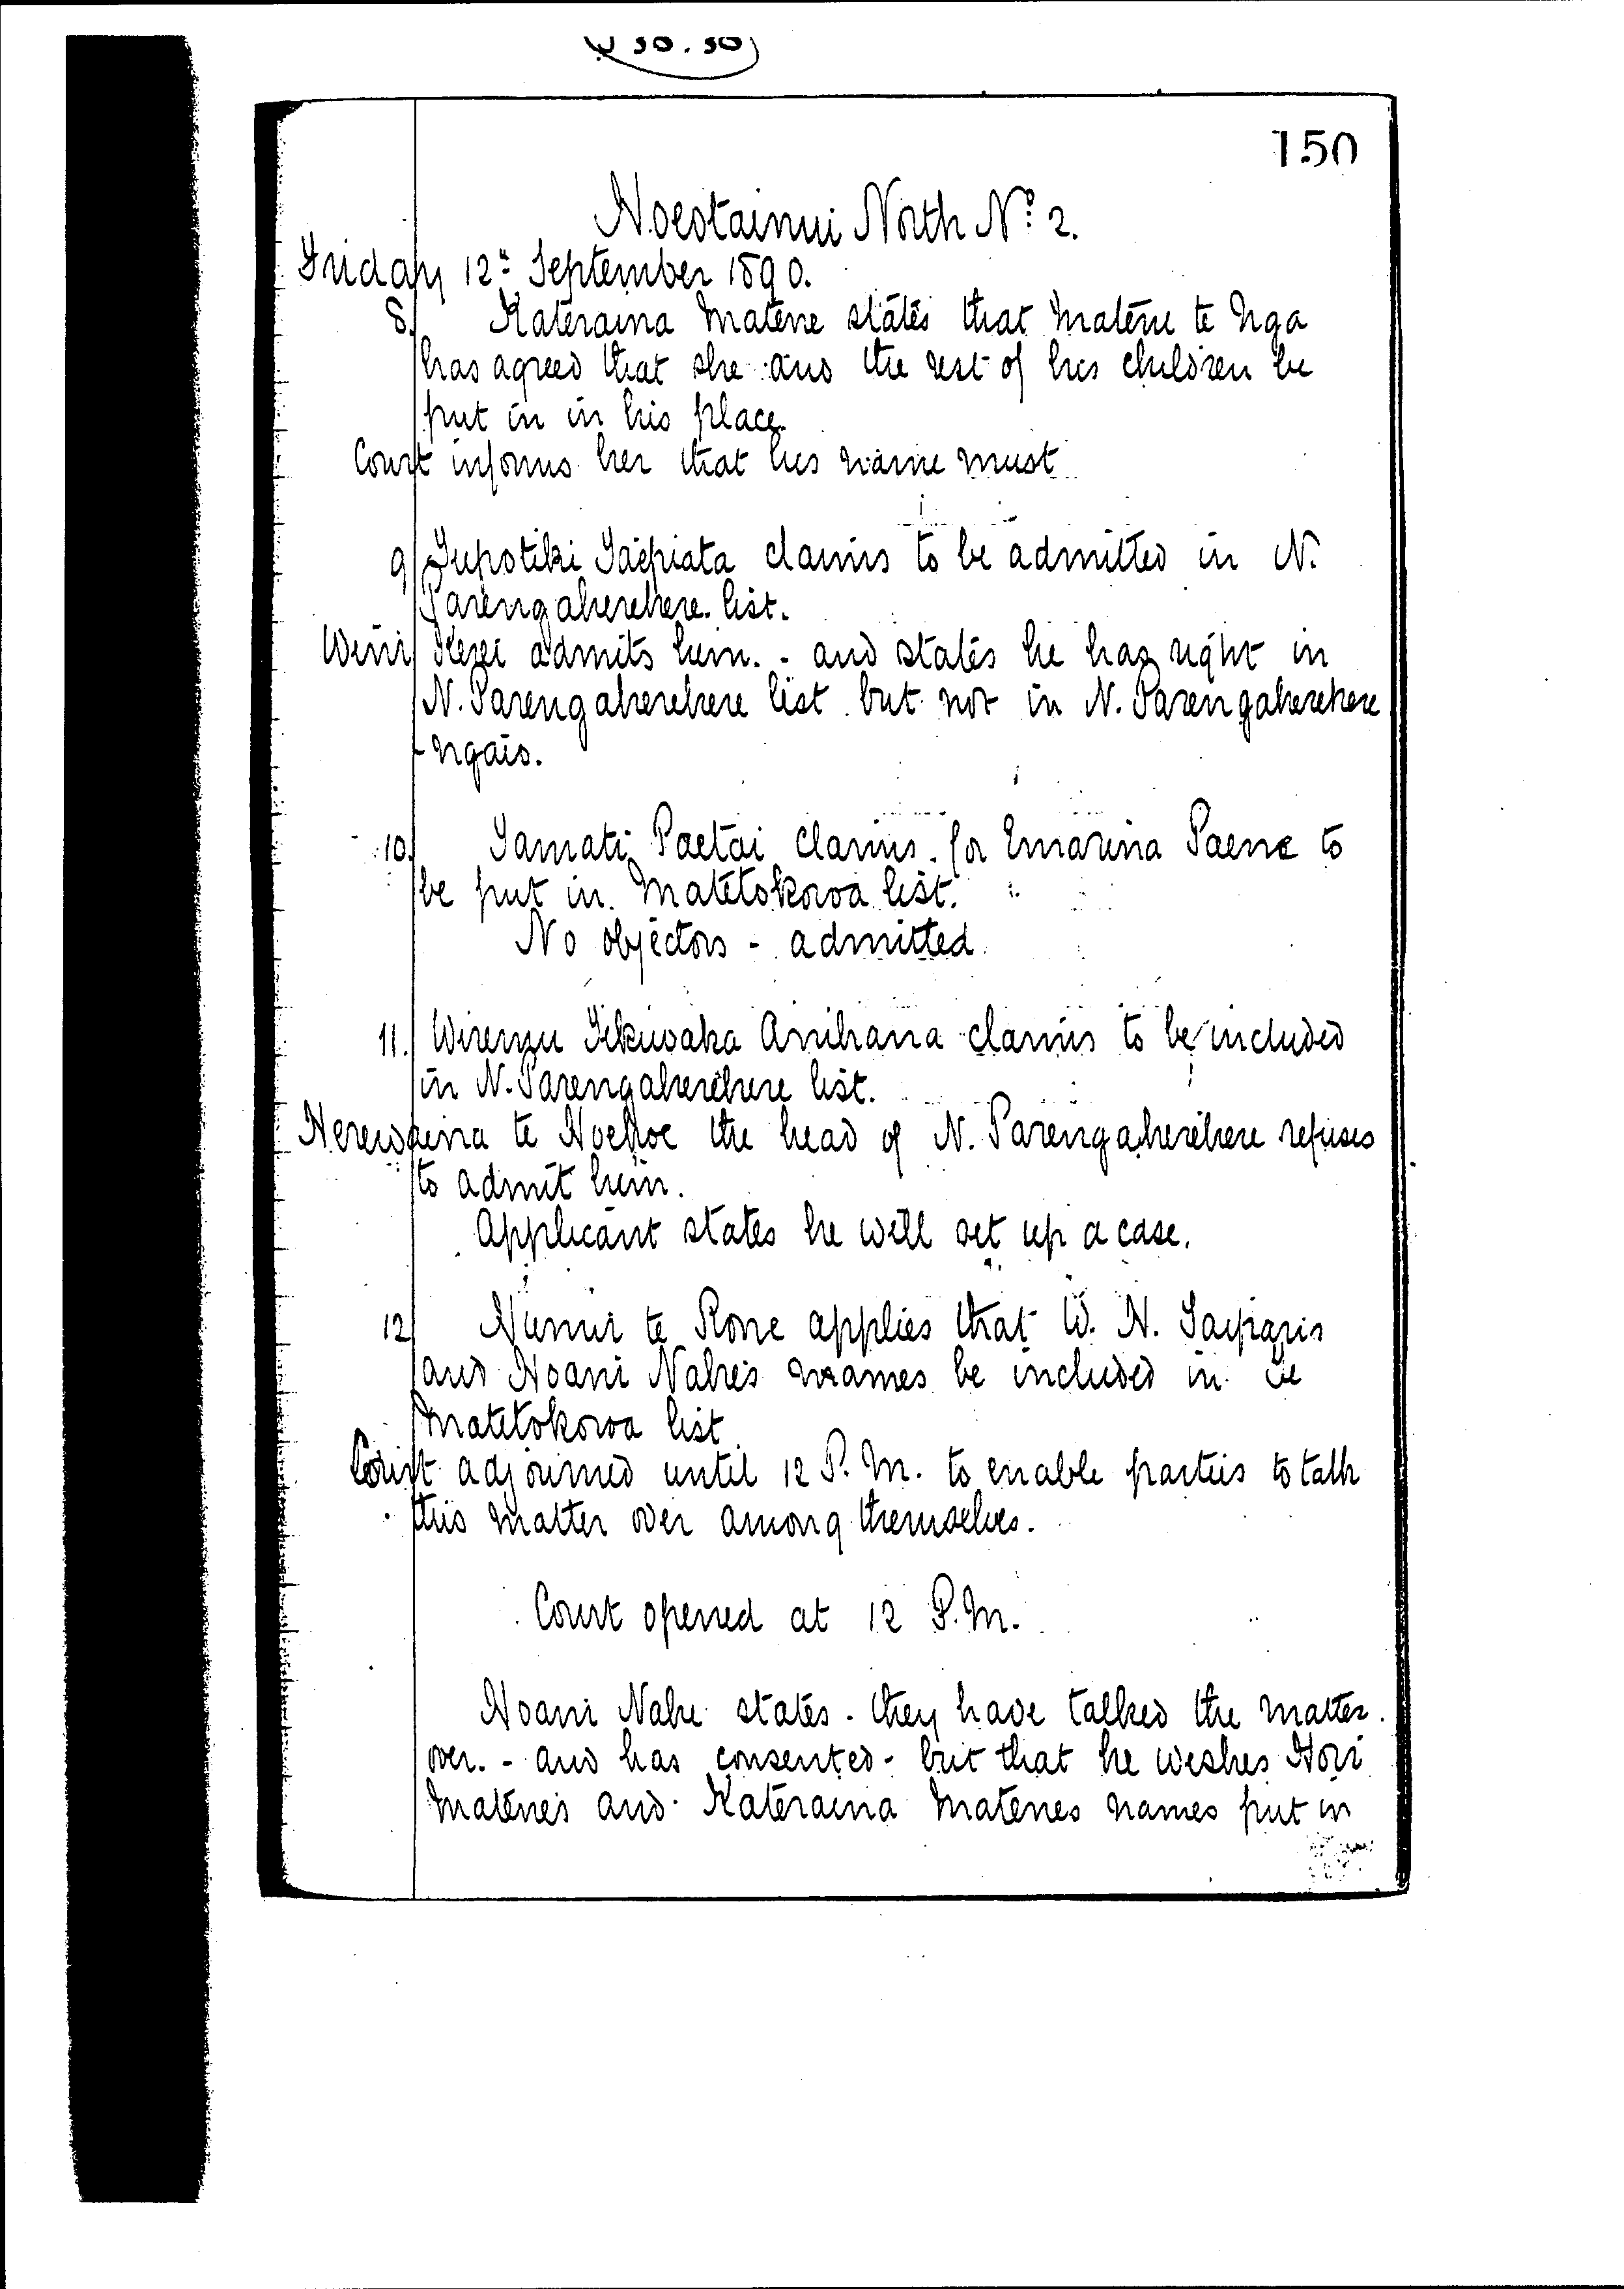 150
Hoeotainui North No. 2.
Friday 12" September 1890.
8. Kateraina Matene states that Matene te Nga
has agreed that she and the rest of his children be
put in in his place.
Court informs her that his name must
9/ Tupotiki Taipiata claims to be admitted in N.
Parengaherehere list.
Wini Kerei admits him. - and states he has right in
N. Parengaherehere list but not in N. Parengaherehere
- ngaio.
10. Tamati Paetai claims for Emarina Paene to
be put in Matetokoroa list.
No objectors - admitted
11. Wiremu Tekiwaka Anihana claims to be included
in N. Parengaherehere list.
Herewaina te Hoehoe the head of N. Parengaherehere refuses
to admit him.
Applicant states he will set up a case.
12/ Hunui te Rone applies that W. H. Taiparis
and Hoani Nahe's names be included in te
Matetokoroa list
Court adjourned until 12 P.M. to enable parties to talk
this matter over among themselves.
Court opened at 12 P.M.
Hoani Nahe states - they have talked the matter
over. - and has consented - but that he wishes Hori
Matene's and Kateraina Matenes names put in